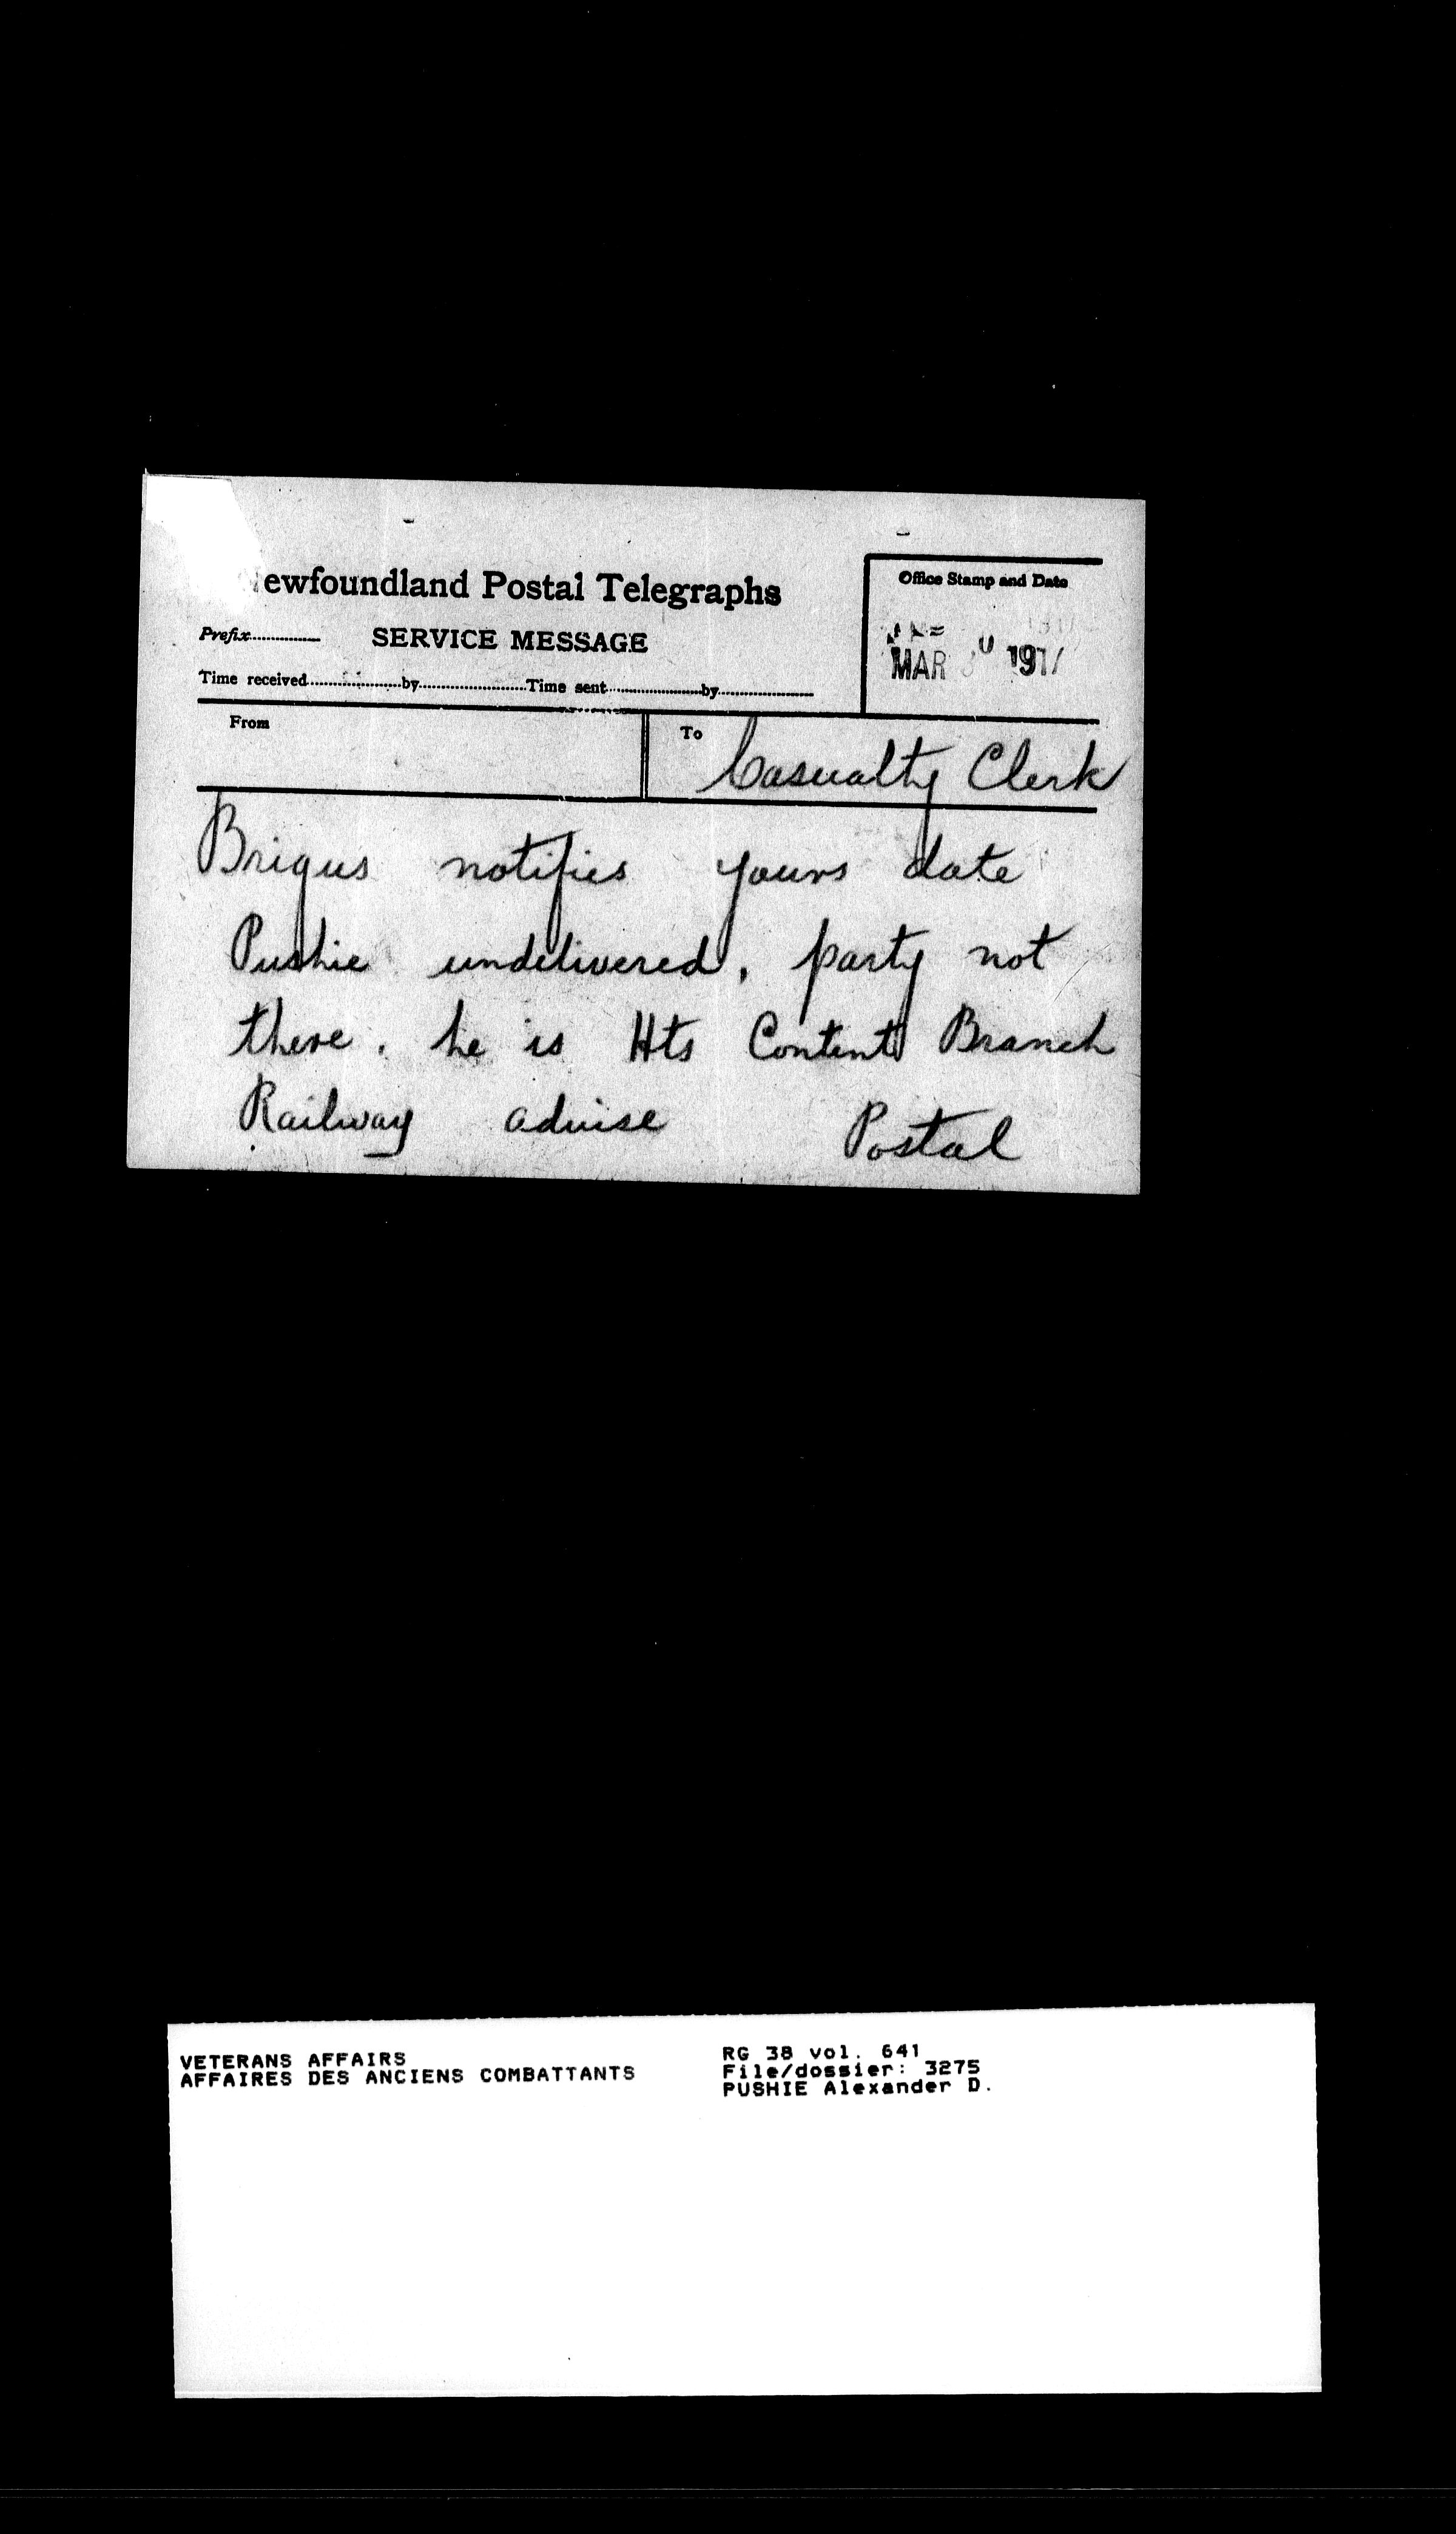 ewfoundland Postal Telegraphs
Office Stamp and Date
Prefix
SERVICE MESSAGE
MAR 191
Time received by Time sent by
From
To Casualty Clerk
Brigus notifies yours date
Pushie undelivered, party not
there. he is Hts Contents Branch
Railway advise Postal
VETERANS AFFAIRS
AFFAIRES DES ANCIENS COMBATTANTS
RG 38 vol. 641
File/dossier: 3275
PUSHIE Alexander D.